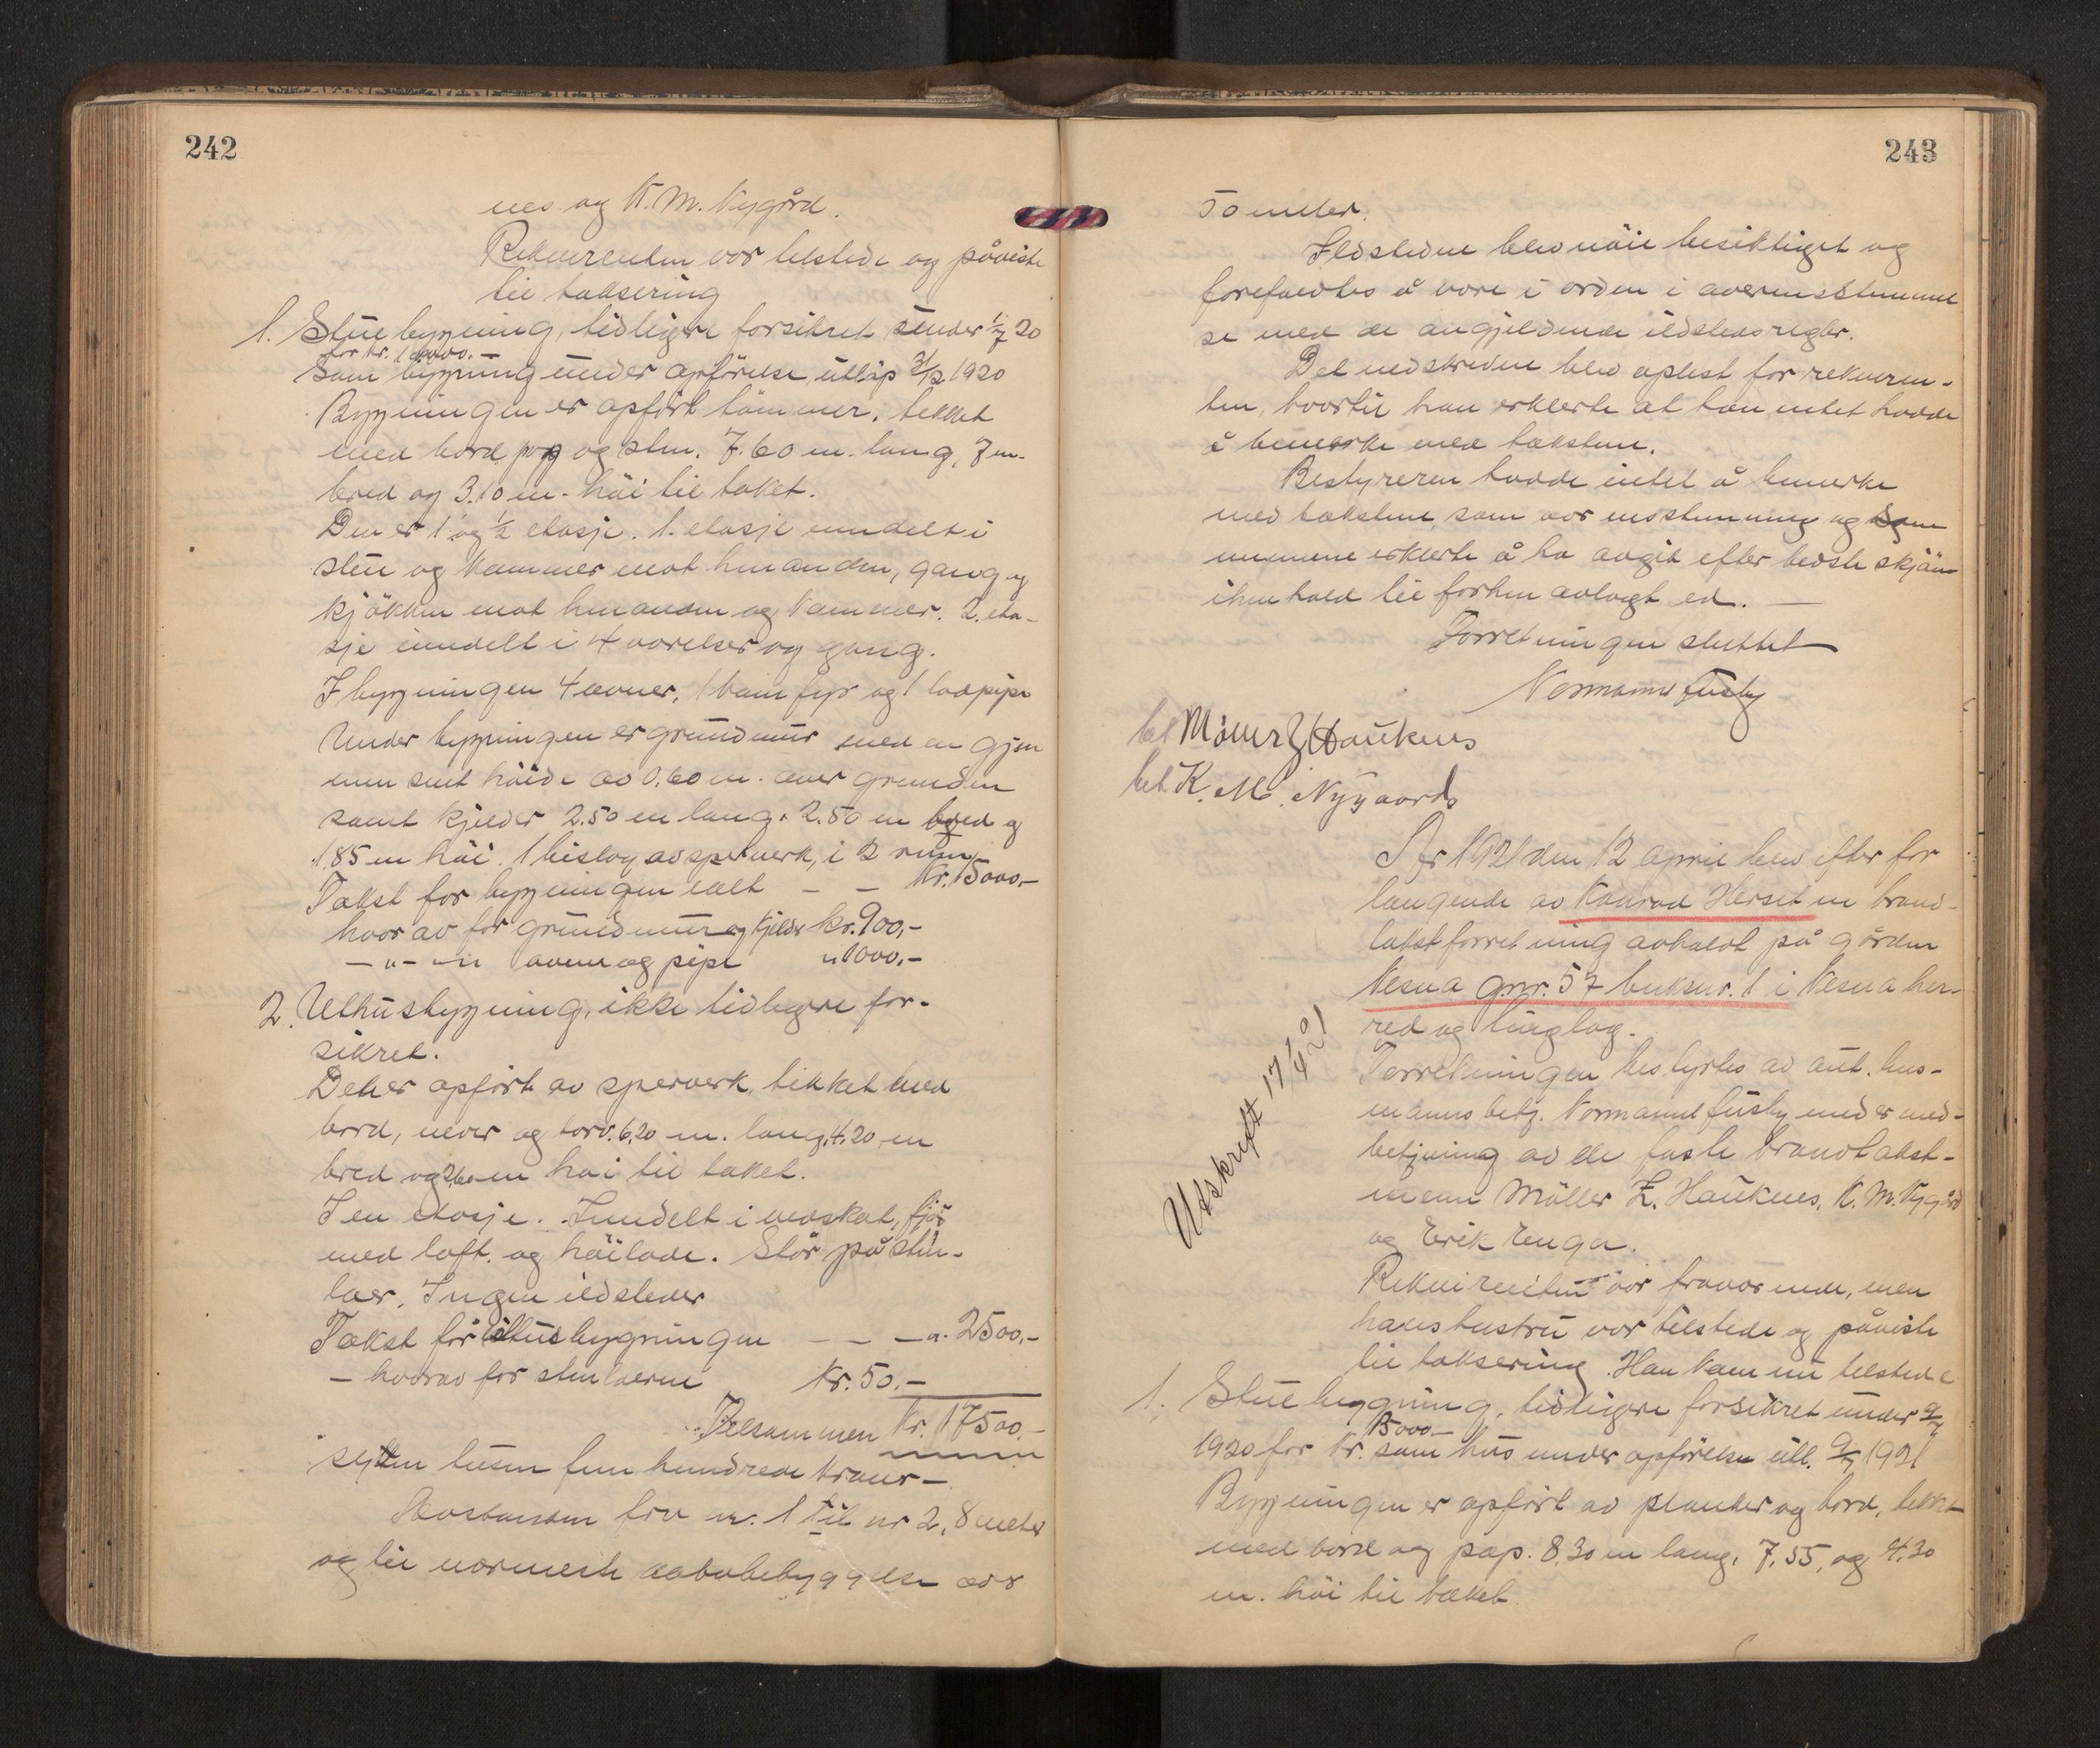 242
nes og K. M. Nygård.
Rekvirenten var tilstede og påviste
til taksering
1. Stuebygning, tidligere forsikret under 1/7 20
for kr. 10000.-
som bygning under opförelse, utlöp 31/12 1920
Bygningen er opfört tömmer, tekket
med bord, papp og sten. 7.60 m. lang, 7 m.
bred og 3.10 m. höi til taket.
Den er 1 og 1/2 etasje. 1. etasje inndelt i
stue og kammer mot hinanden, gang og
kjökken mot hinanden og kammer. 2. eta-
sje inndelt i 4 værelser og gang.
I bygningen 4 ovner, 1 kamfyr og 1 lodpipe
Under bygningen er grundmur med en gjen
nemsnit höide av 0.60 m. over grunden
samt kjelder 2.50 m lang, 2.50 m bred og
1,85 m höi. 1 bislag av sperverk, i 2 rum
Takst for bygningen ialt - - Kr. 15000,-
hvorav for grundmur og kjelder kr. 900,-
-"- -"- ovner og pipe " 1000,-
2. Uthusbygning, ikke tidligere for-
sikret.
Den er opfört av sperverk, tekket med
bord, never og torv. 6,20 m. lang, 4,20 m
bred og 2,60 m höi til taket.
I en etasje. Inndelt i vedskot, fjös
med loft og höilade. Står på sten-
laer. Ingen ildsteder
Takst for uthusbygningen - - -"- 2500,-
- hvorav for stenlaerne kr. 50.-
Tilsammen Kr. 17500.-
sytten tusen fem hundrede kroner-
Avstanden fra nr. 1 til nr 2, 8 meter
og til nærmeste nabobebyggelse over
243
50 meter.
Ildstedene blev nöie besiktiget og
forefandtes å være i orden i overensstemmel
se med de angjeldende ildstedsregler.
Det nedskrevne blev oplest for rekviren-
ten, hvortil han erklerte at han intet hadde
å bemerke med taksten.
Bestyreren hadde intet å bemerke
med taksten, som var enstemmig og som
mennene erklerte å ha avgit efter bedste skjön
i henhold til forhen avlagt ed. -
Forretningen sluttet
Normann Husby
bet Möller Z Hauknes
bet. K. M. Nygaard
År 1921 den 12 april blev efter for
langende av Konrad Herset en brand-
takstforretning avholdt på gården
Nesna gnr. 57 bruksnr. 1 i Nesna her-
red og tinglag.
Forretningen bestyrtes av aut. lens-
manns betj. Normann Husby under med-
betjening av de faste brandtakst-
menn Möller Z. Hauknes, K. M. Nygård
og Erik Enga.
Utskrift 17/4 21
Rekvirenten var fraværende, men
hans hustru var tilstede og påviste
til taksering. Han kam nu tilstede
1. Stuebygning, tidligere forsikret under 9/7
15000.-
1920 for kr. som hus under opförelse utl. 9/7 1921
Bygningen er opfört av planker og bord, tekk-
med bord og pap. 8,30 m lang, 7,55, og 4,30
m. höi til taket.